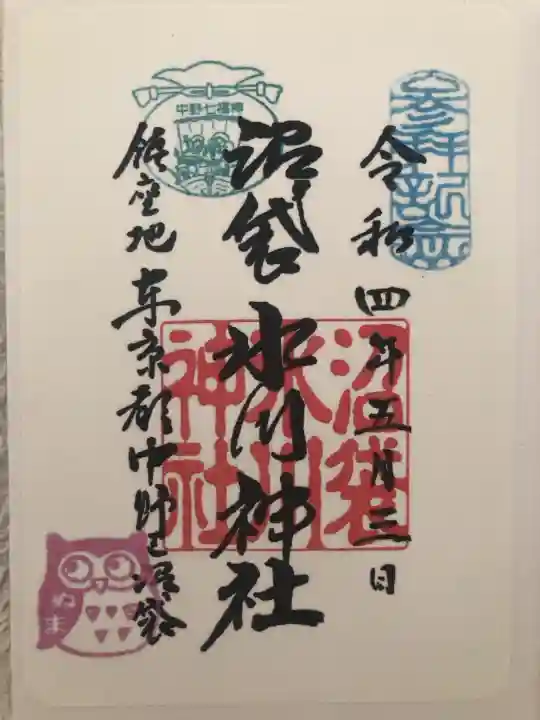 参拝記念
令和四年五月三日
沼袋氷川神社
沼袋
氷川
神社
中野七福神
鎮座地 東京都中野区沼袋
ぬま